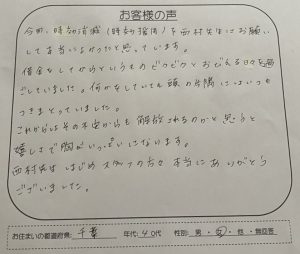 お客様の声
今回、時効消滅(時効援用)を西村先生にお願い
して本当によかったと思っています。
借金をしてからというものビクビクとおびえる日々を過
ごしていました。何かをしていても頭の片隅にはいつも
つきまとっていました。
これからはその不安からも解放されるのかと思うと
嬉しさで胸がいっぱいになります。
西村先生はじめスタッフの方々本当にありがとう
ございました。
お住まいの都道府県: 千葉 年代: 40代 性別: 男・女・他・無回答